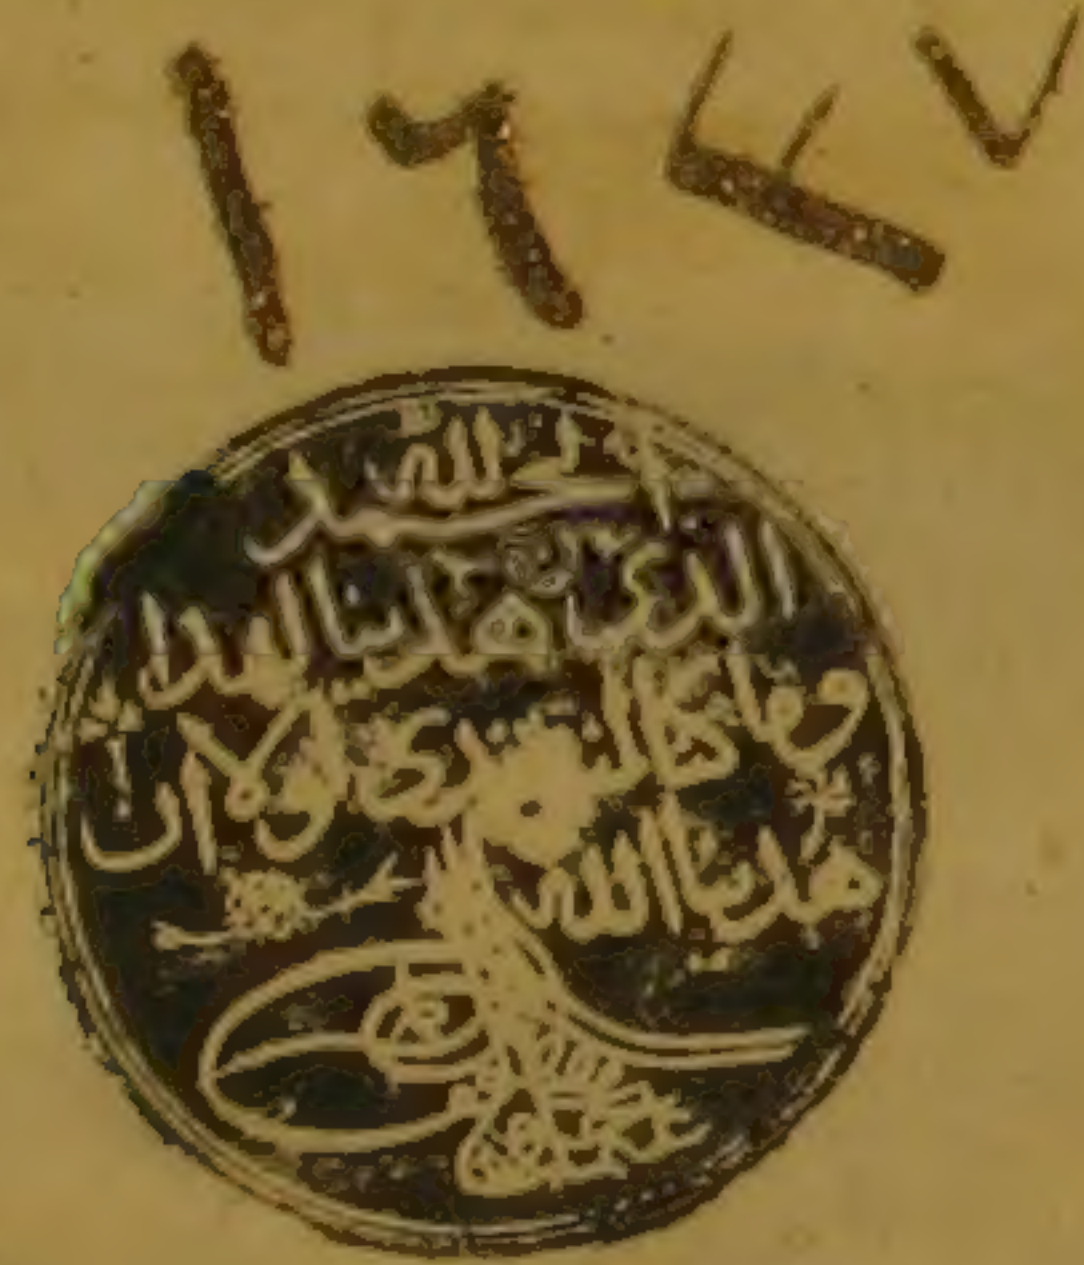 ١٦٤٧
الحمد لله
الذى هدينا لهذا
وما كنا لنهتدى لولا ان
هدينا الله